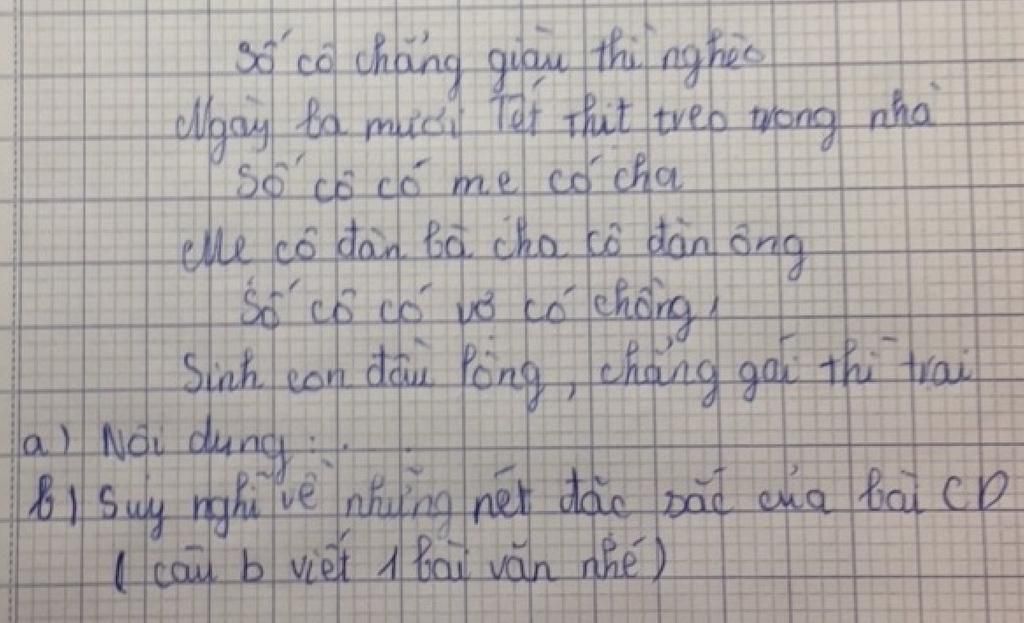 Số cô chẳng giàu thì nghèo
Ngày ba mươi Tết thịt treo trong nhà
Số cô có mẹ có cha
Mẹ cô đàn bà cha cô đàn ông
Số cô có vợ có chồng,
Sinh con đầu lòng, chẳng gái thì trai
a) Nội dung: . .
b) Suy nghĩ về những nét đặc sắc của bài CD
( câu b viết 1 bài văn nhé)